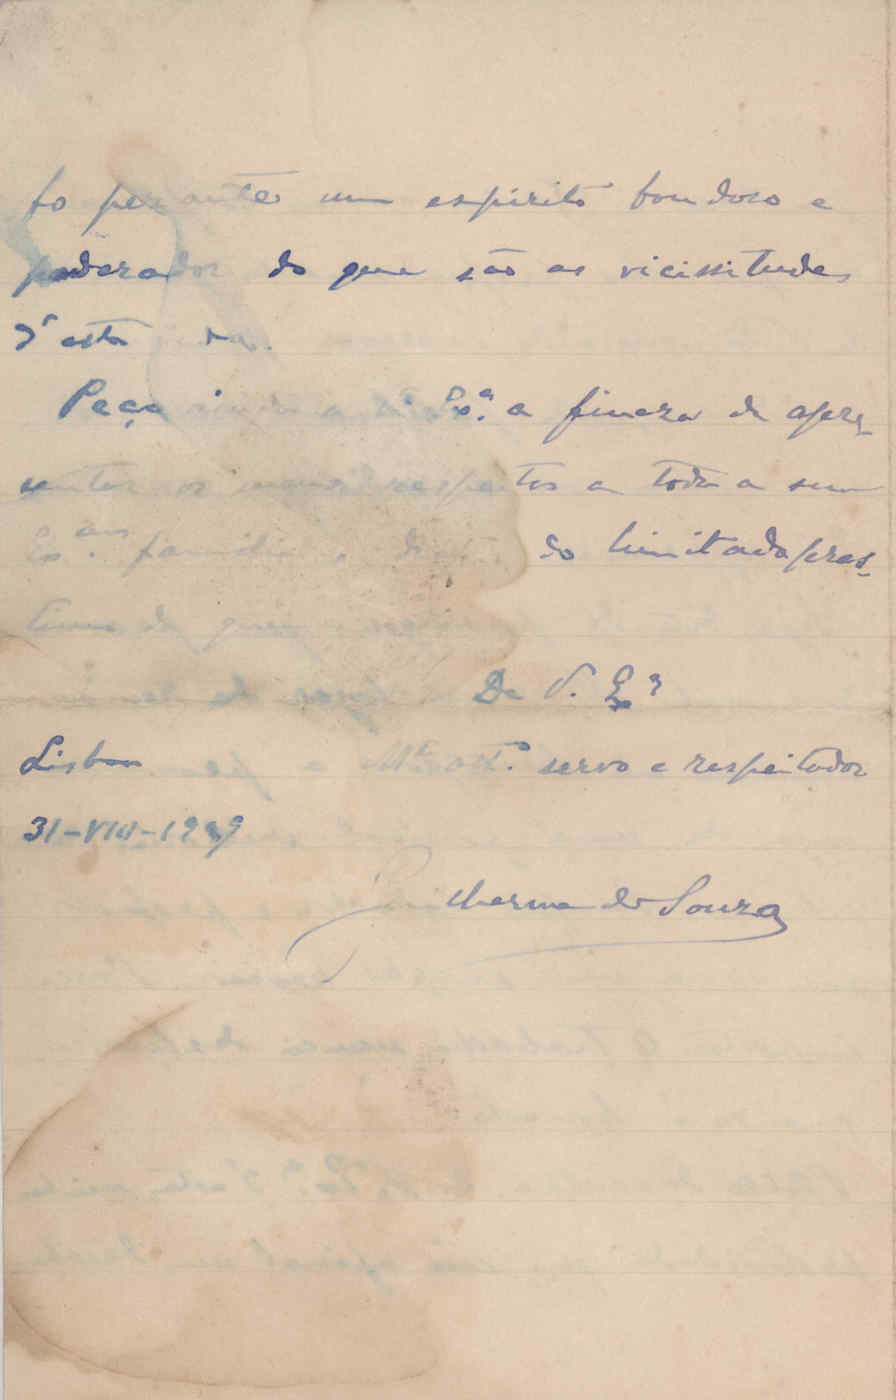 fo perante um espirito bondoso e
ponderador do que são as vicissitudes
d'esta vida.
Peço ainda a V. Exª. a fineza de apre-
sentar os meus respeitos a toda a sua
Exma. familia e do limitado pres-
timo de quem
De V. Exª
Lisboa Mto. Atto. servo e respeitador
31-VIII-1929
Guilherme de Souza